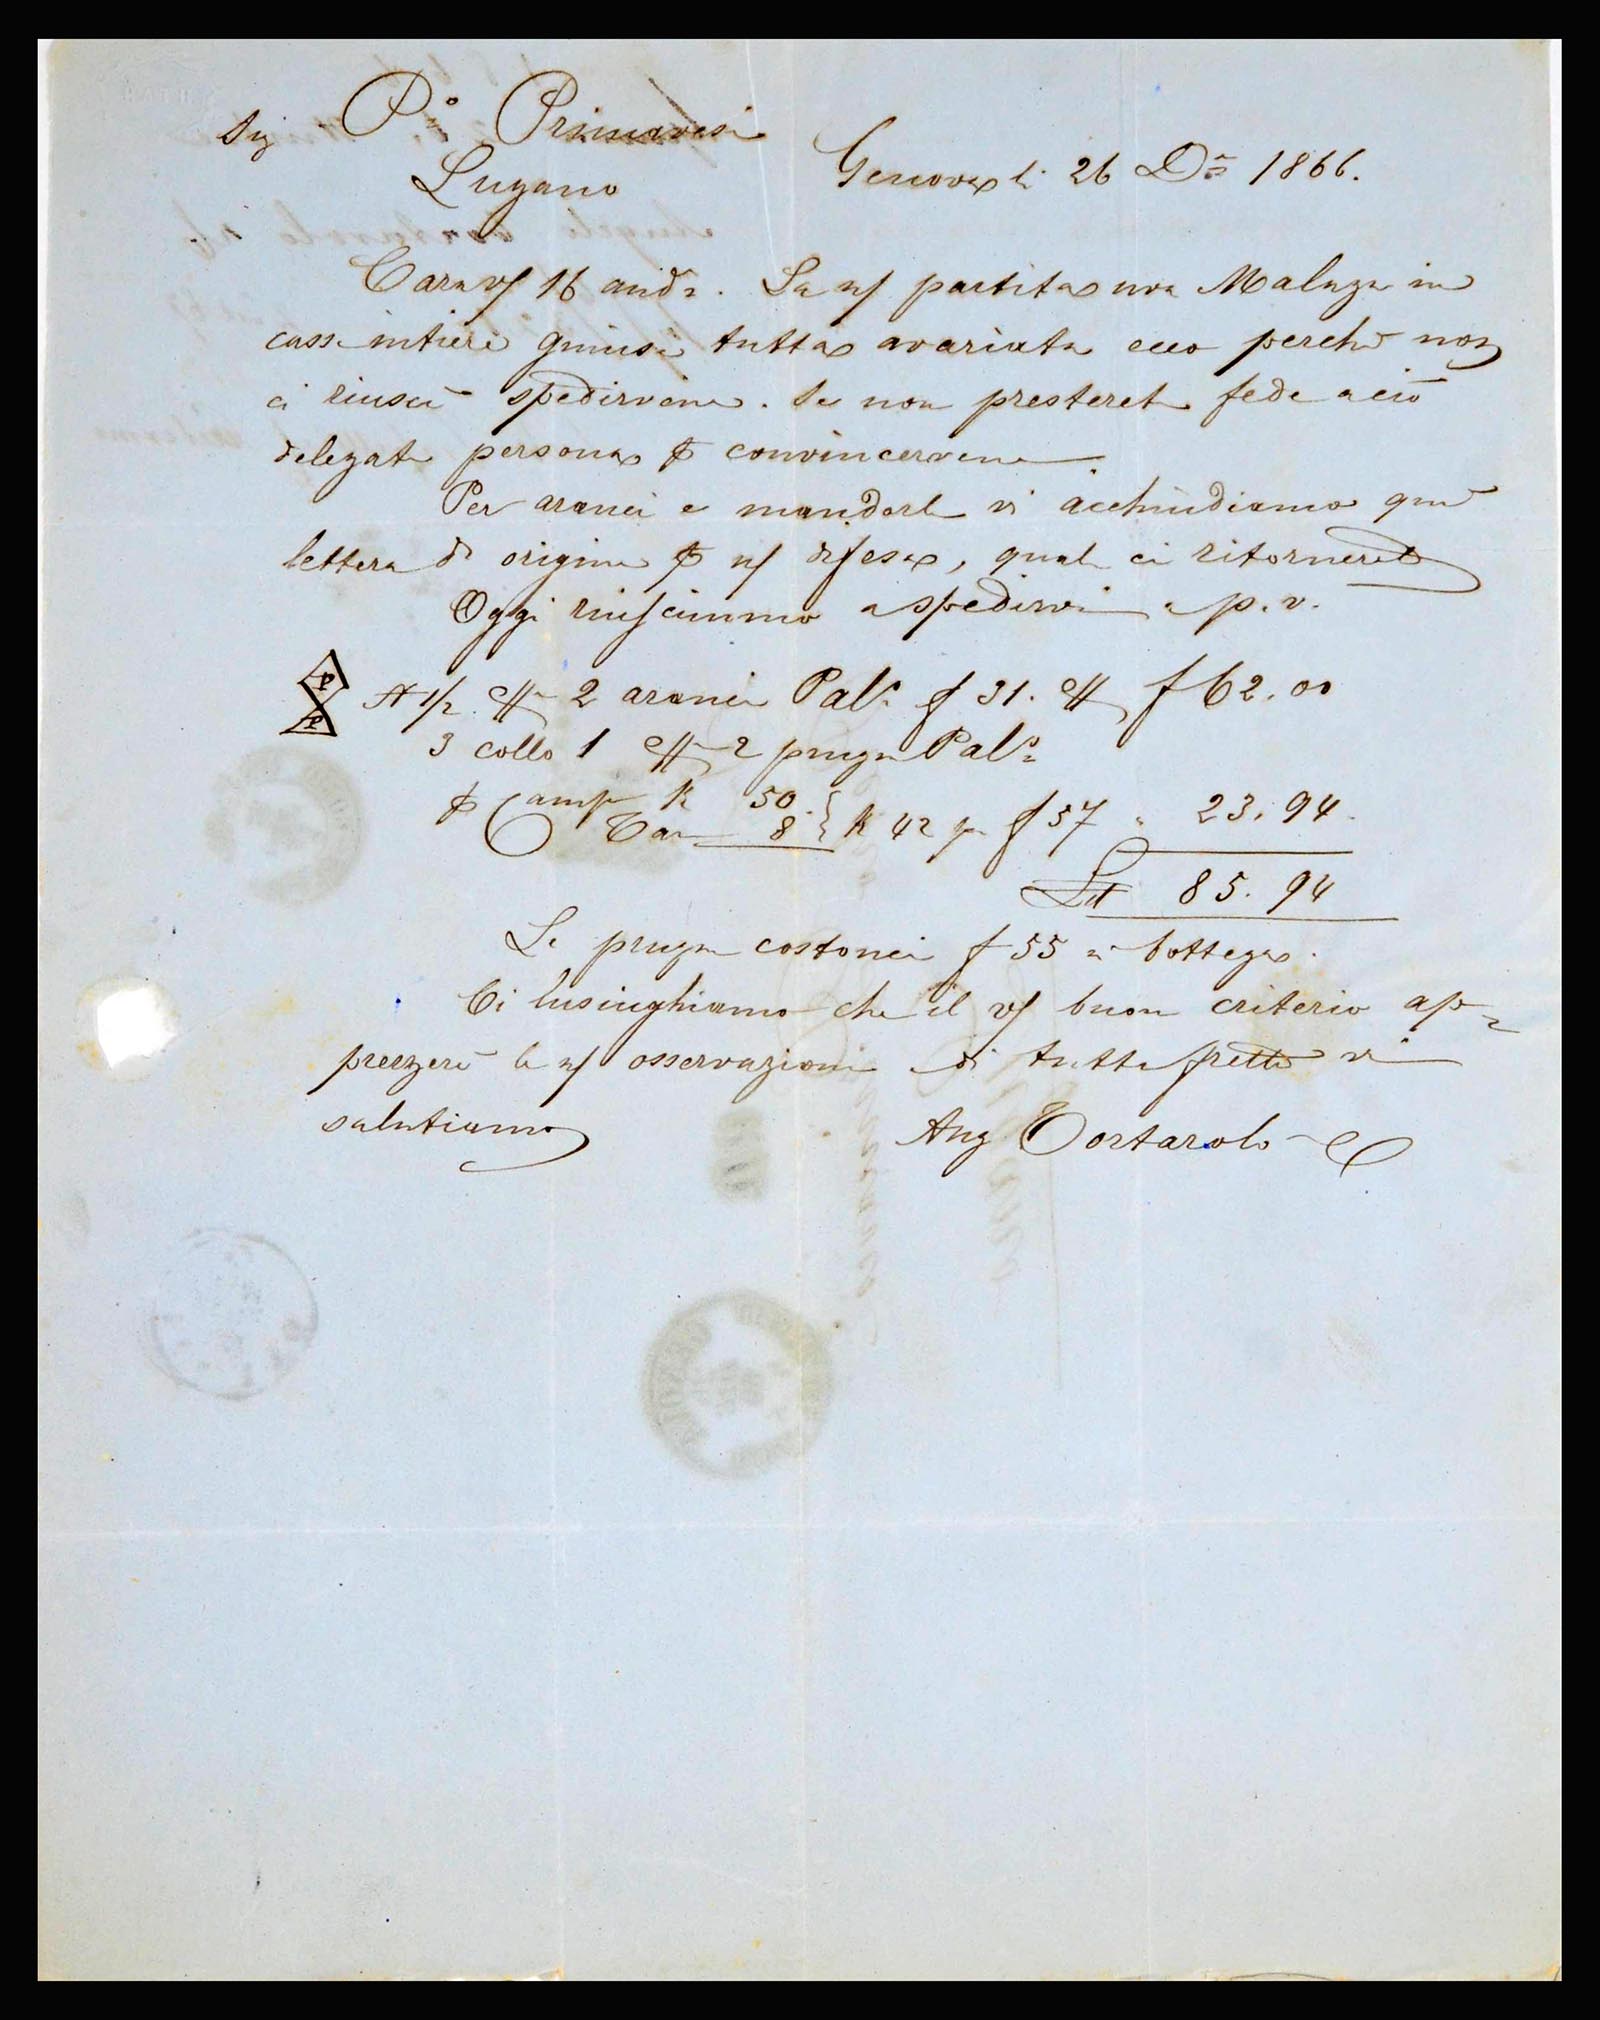 Sig P.º Primavesi
Lugano
Genova li 26 D.re 1866.
Cara v/ 16 and.e. La n/ partita uva Malaga in
casse intiere giunse tutta avariata ecco perchè non
ci riuscì spedirvene. Se non presterete fede a ciò
delegate persona p convincervene.
Per aranci e mandorle vi acchiudiamo quì
lettera di origine p n/ difesa, quale ci ritornerete
Oggi riuscimmo a spedirvi a p. v.
P P
N 1/2 2 aranci Pal.o f 31. f 62.00
3 collo 1 2 prugne Pal.o
p Camp K 50
Tara 8 K 42 p f 57 " 23.94.
Lit 85.94
Le prugne costonci f 55 a bottega.
Ci lusinghiamo che il v/ buon criterio ap=
prezzerà le n/ osservazioni e di tutta fretta vi
salutiamo
Ang. Tortarolo